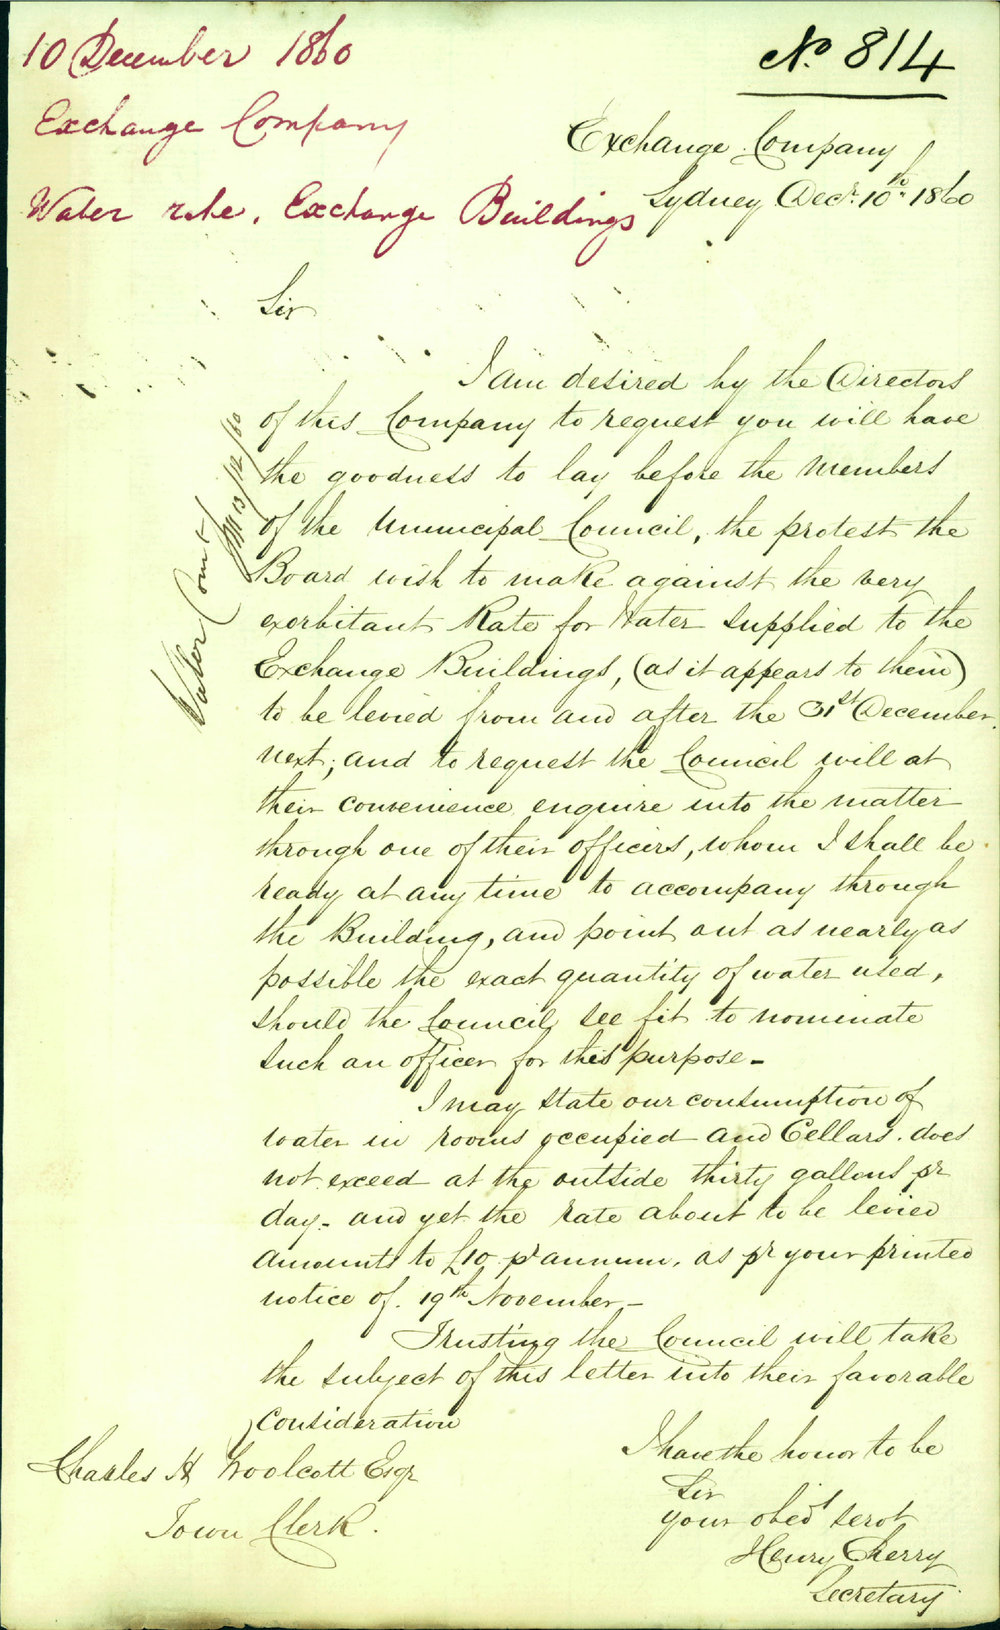 10 December 1860
Exchange Company
Water rate, Exchange Buildings
No. 814
Exchange Company
Sydney Decr. 10th 1860
Sir
I am desired by the Directors
of this Company to request you will have
the goodness to lay before the members
of the Municipal Council, the protest the
Board wish to make against the very
exorbitant Rate for Water supplied to the
Exchange Buildings, (as it appears to them)
to be levied from and after the 31st December
next; and to request the Council will at
their convenience enquire into the matter
through one of their officers, whom I shall be
ready at any time to accompany through
the Building, and point out as nearly as
possible the exact quantity of water used,
should the Council see fit to nominate
such an officer for this purpose -
I may state our consumption of
water in rooms occupied and Cellars. does
not exceed at the outside thirty gallons pr
day - and yet the rate about to be levied
amounts to £10 pr annum, as pr your printed
notice of. 19th November -
Trusting the Council will take
the subject of this letter into their favorable
consideration
I have the honor to be
Sir
your obedt servt
Henry Cherry
Secretary
Charles H Woolcott Esqr
Town Clerk.
Water Comt
13/12/60